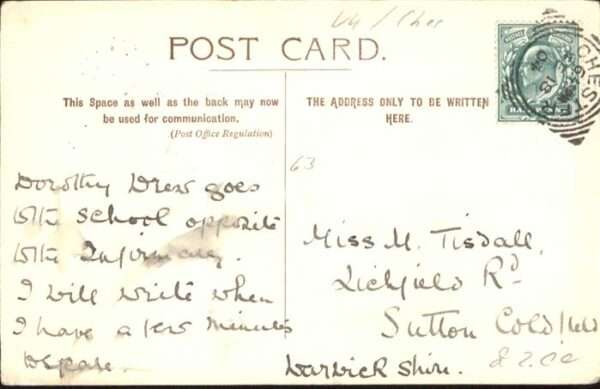 Uk / Ches
POST CARD.
This Space as well as the back may now
be used for communication.
(Post Office Regulation)
THE ADDRESS ONLY TO BE WRITTEN
HERE.
CHEST
63
Dorothy Drew goes
to the school opposite
to the Infirmary.
I will write when
I have a few minutes
to spare.
Miss M. Tisdall,
Lichfield Rd
Sutton Coldfield
Warwickshire.